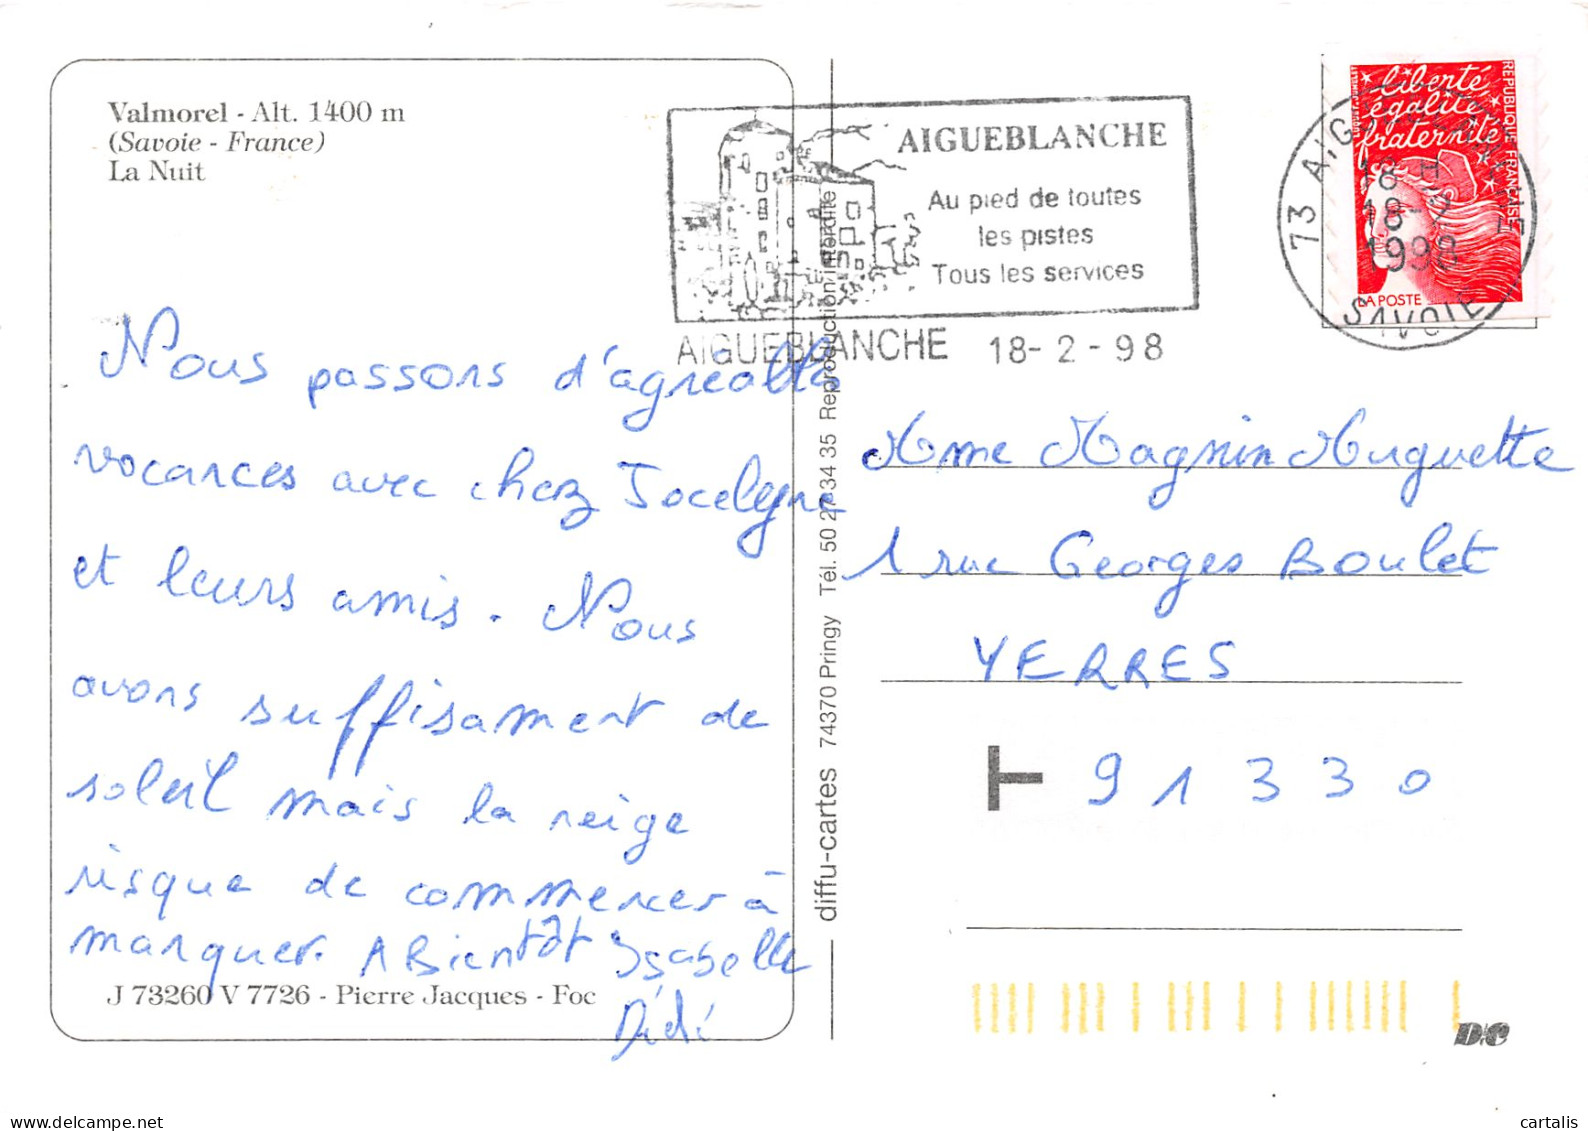 Valmorel - Alt. 1400 m
(Savoie - France)
La Nuit
Nous passons d'agreables
vacances avec chez Jocelyne
et leurs amis. Nous
avons suffisament de
soleil mais la neige
risque de commencer à
manquer. A Bientôt Isabelle
Didi
J 73260 V 7726 - Pierre Jacques - Foc
diffu-cartes 74370 Pringy Tél. 50 27 34 35 Reproduction interdite
AIGUEBLANCHE
Au pied de toutes
les pistes
Tous les services
AIGUEBLANCHE 18-2-98
73 AIGUEBLANCHE
18 H
18-2
1998
SAVOIE
liberté
égalité
fraternité
RÉPUBLIQUE FRANÇAISE
LA POSTE
Mme Magnin Huguette
1 rue Georges Boulet
YERRES
T 91330
D.C
cartalis | delcampe.net